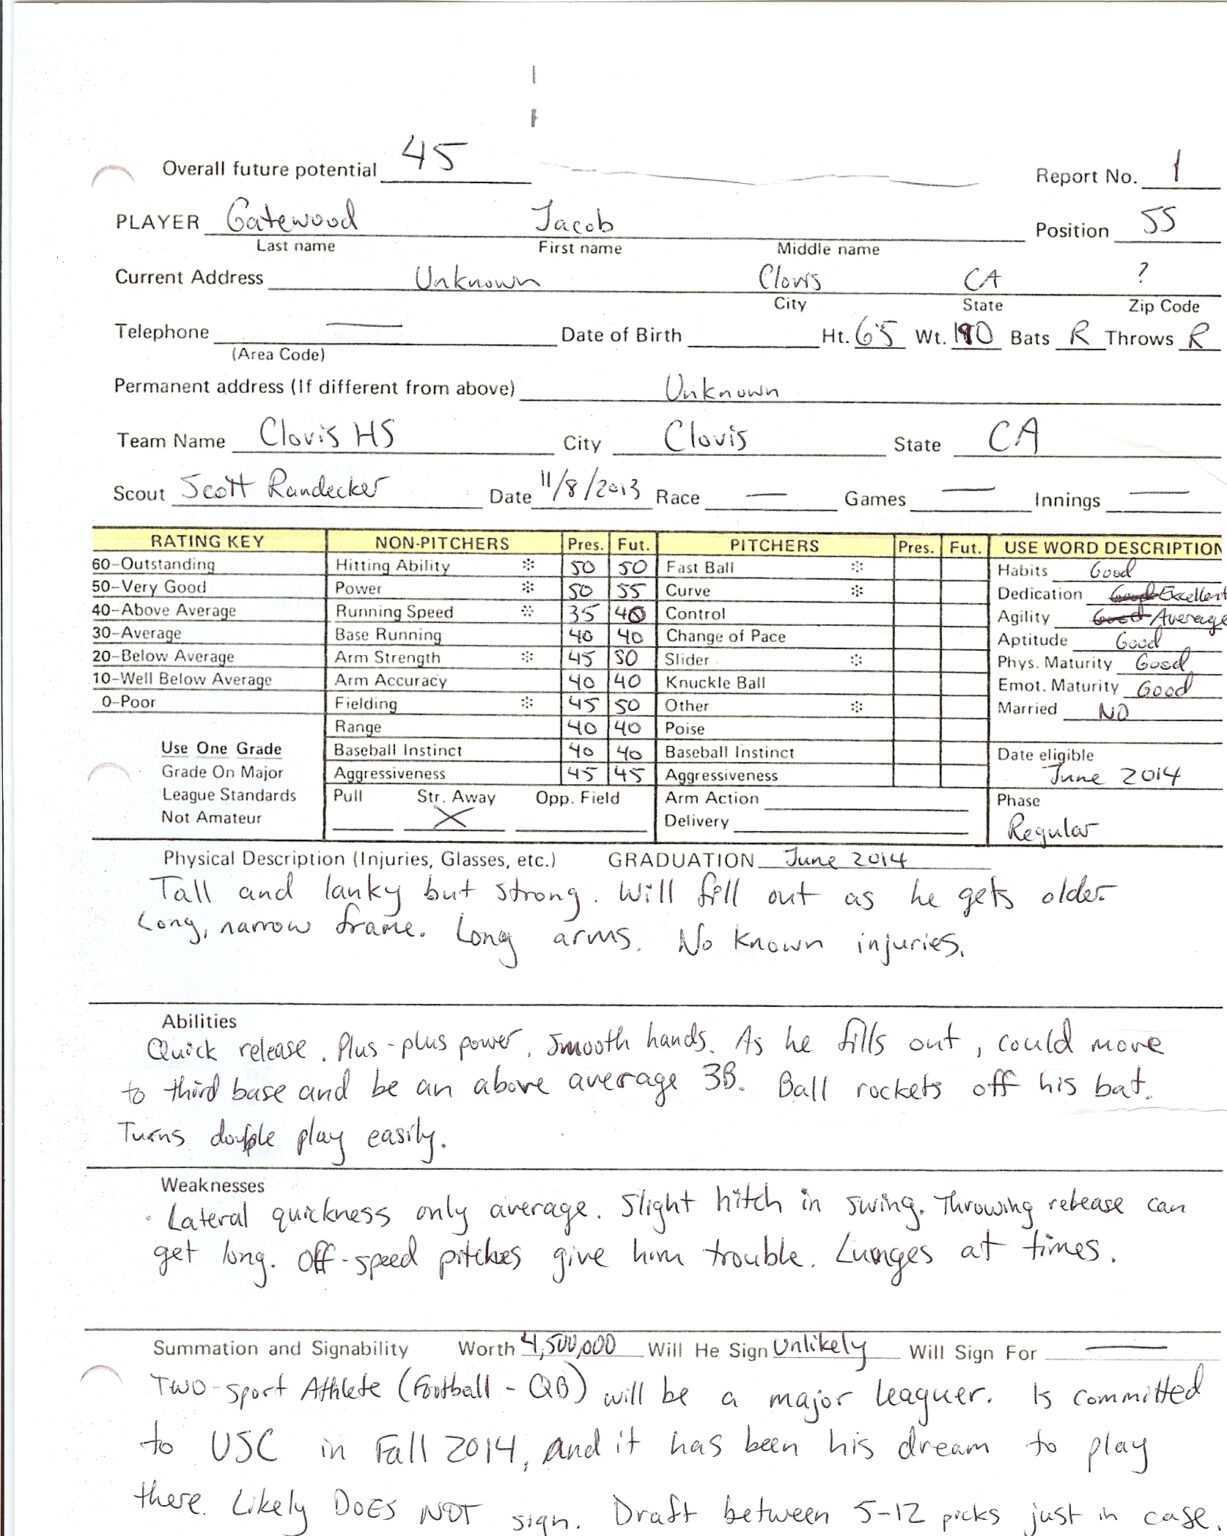 Overall future potential 45
Report No. 1
PLAYER Gatewood Jacob Position SS
Last name First name Middle name
Current Address Unknown Clovis CA ?
City State Zip Code
Telephone — Date of Birth Ht. 6'5 Wt. 190 Bats R Throws R
(Area Code)
Permanent address (If different from above) Unknown
Team Name Clovis HS City Clovis State CA
Scout Scott Randecker Date 11/8/2013 Race — Games — Innings —
RATING KEY NON-PITCHERS Pres. Fut. PITCHERS Pres. Fut. USE WORD DESCRIPTION
60-Outstanding Hitting Ability * 50 50 Fast Ball * Habits Good
50-Very Good Power * 50 55 Curve * Dedication Good Excellent
40-Above Average Running Speed * 35 40 Control Agility Good Average
30-Average Base Running 40 40 Change of Pace Aptitude Good
20-Below Average Arm Strength * 45 50 Slider * Phys. Maturity Good
10-Well Below Average Arm Accuracy 40 40 Knuckle Ball Emot. Maturity Good
0-Poor Fielding * 45 50 Other * Married NO
Range 40 40 Poise
Use One Grade Baseball Instinct 40 40 Baseball Instinct Date eligible
Grade On Major Aggressiveness 45 45 Aggressiveness June 2014
League Standards Pull Str. Away Opp. Field Arm Action Phase
Not Amateur X Delivery Regular
Physical Description (Injuries, Glasses, etc.) GRADUATION June 2014
Tall and lanky but strong. Will fill out as he gets older.
Long, narrow frame. Long arms. No known injuries.
Abilities
Quick release. Plus-plus power. Smooth hands. As he fills out, could move
to third base and be an above average 3B. Ball rockets off his bat.
Turns double play easily.
Weaknesses
Lateral quickness only average. Slight hitch in swing. Throwing release can
get long. Off-speed pitches give him trouble. Lunges at times.
Summation and Signability Worth 4,500,000 Will He Sign Unlikely Will Sign For —
Two-sport Athlete (Football - QB) will be a major leaguer. Is committed
to USC in Fall 2014, and it has been his dream to play
there. Likely DOES NOT sign. Draft between 5-12 picks just in case.